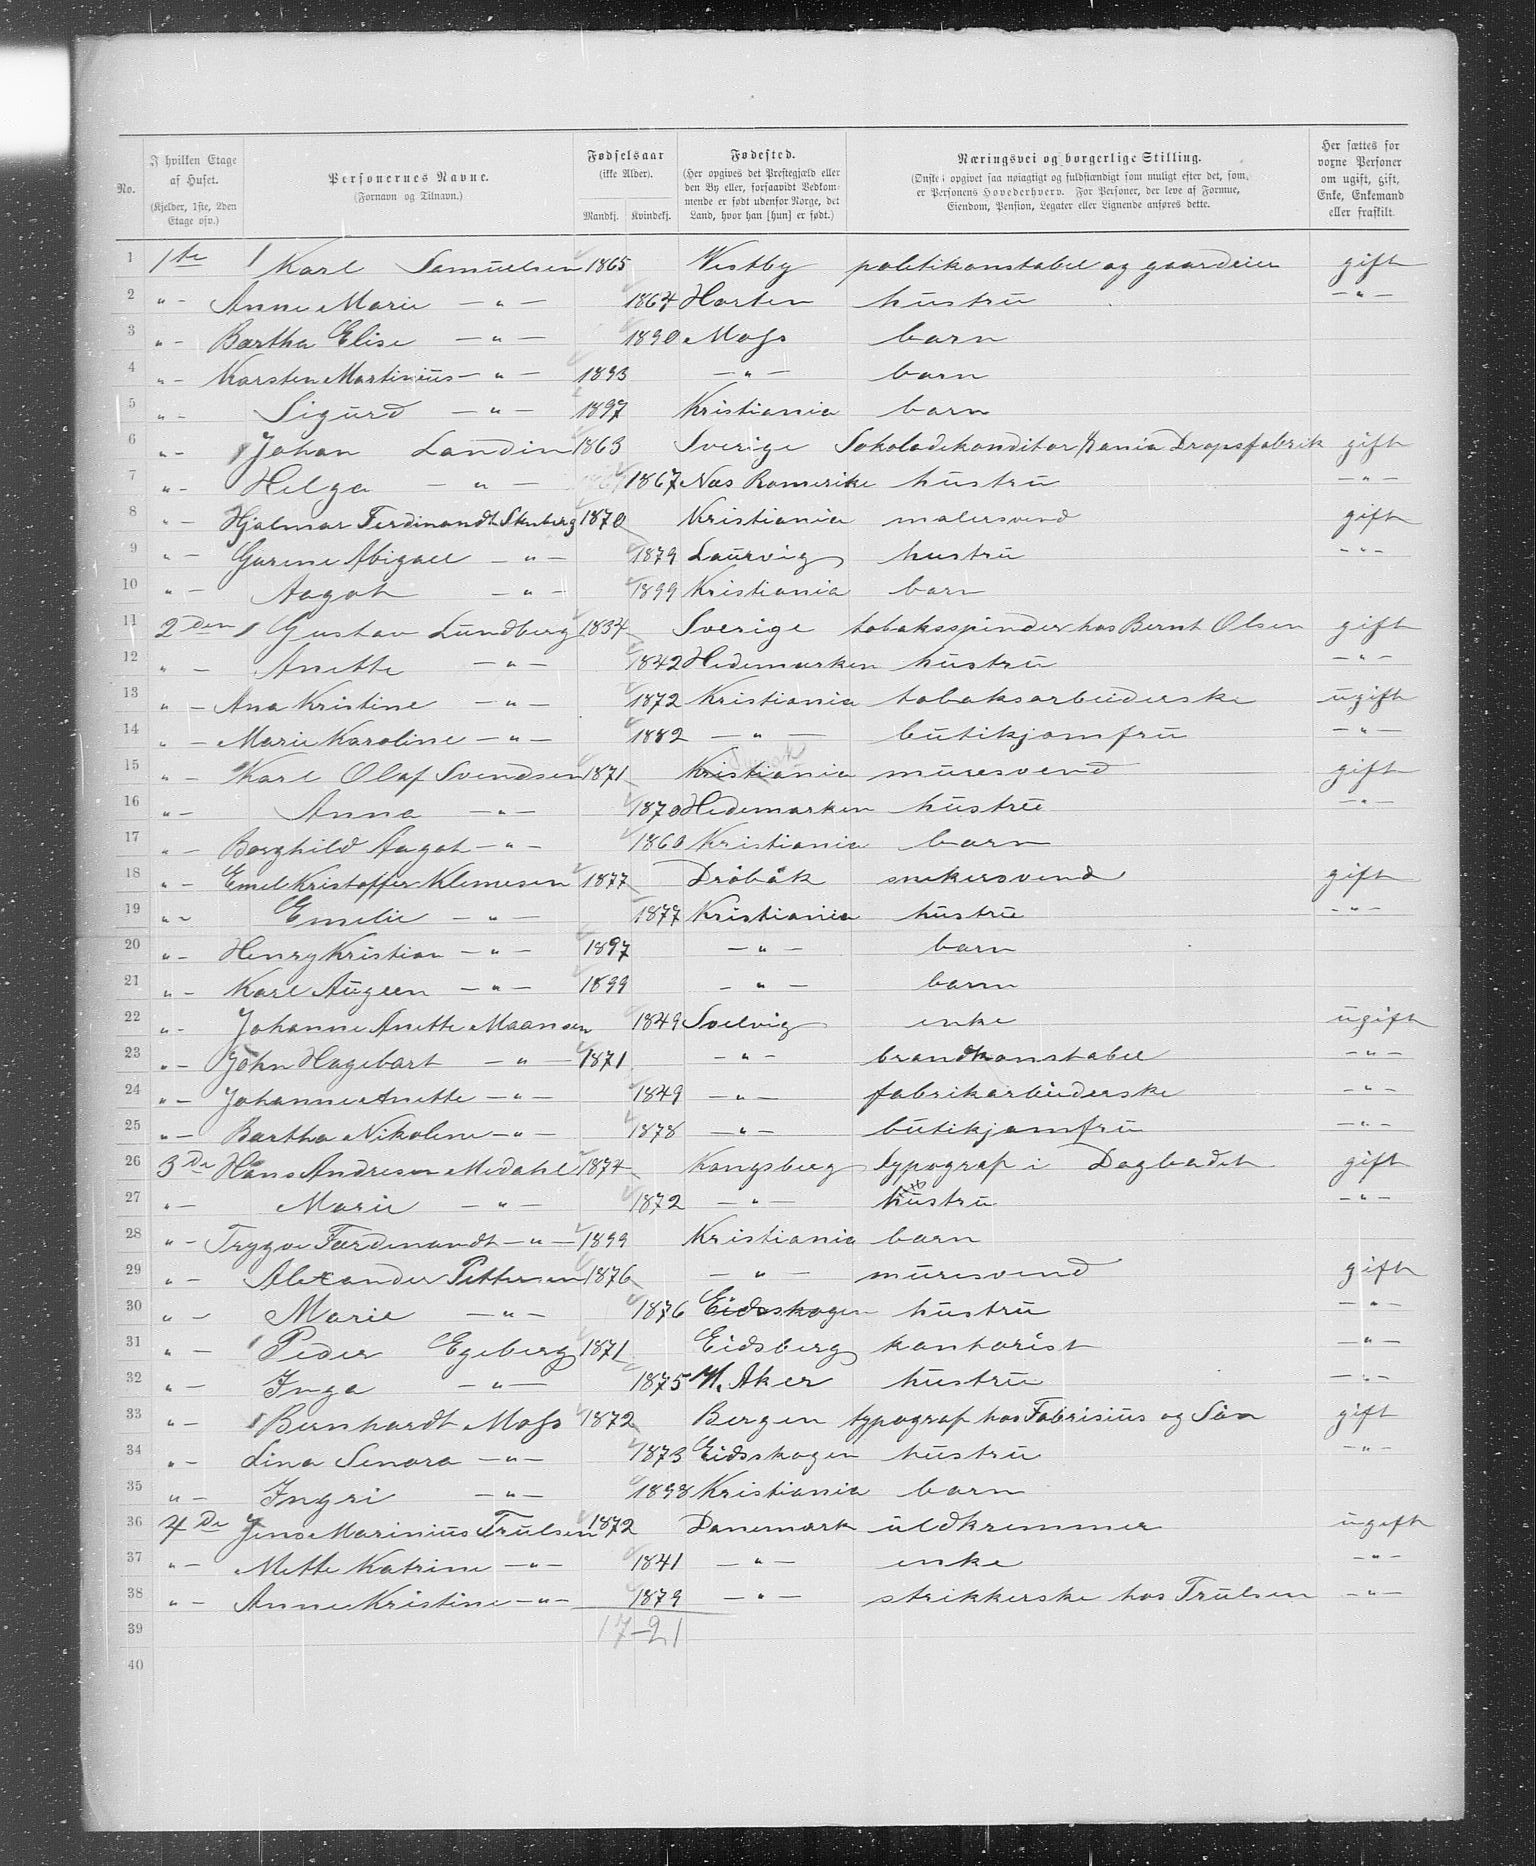 No. | I hvilken Etage af Huset. (Kjelder, 1ste, 2den Etage osv.) | Personernes Navne. (Fornavn og Tilnavn.) | Fødselsaar (ikke Alder). Mandkj. Kvindekj. | Fødested. (Her opgives det Prestegjæld eller den By eller, forsaavidt Vedkommende er født udenfor Norge, det Land, hvor han [hun] er født.) | Næringsvei og borgerlige Stilling. (Ønskes opgivet saa nøiagtigt og fuldstændigt som muligt efter det, som er Personens Hovederhverv. For Personer, der leve af Formue, Eiendom, Pension, Legater eller Lignende anføres dette. | Her sættes for voxne Personer om ugift, gift, Enke, Enkemand eller fraskilt.
1 1ste Karl Samuelsen 1865 Vestby politikonstabel og gaardeier gift
2 "- Anne Marie -"- 1864 Horten hustru -"-
3 "- Bartha Elise -"- 1890 Moss barn
4 "- Karsten Martinius -"- 1893 -"- barn
5 "- Sigurd -"- 1897 Kristiania barn
6 "- Johan Landin 1863 Sverige Sokoladekonditor Kania Dropsfabrik gift
7 "- Helga -"- 1867 Næs Romerike hustru -"-
8 "- Hjalmar Ferdinandt Stenberg 1870 Kristiania malersvend gift
9 "- Gurine Abigael -"- 1879 Laurvig hustru -"-
10 "- Aagot -"- 1899 Kristiania barn
11 2den Gustav Lundberg 1834 Sverige tobaksspinder hos Bernt Olsen gift
12 "- Anette -"- 1842 Hedemarken hustru -"-
13 "- Ana Kristine -"- 1872 Kristiania tobaksarbeiderske ugift
14 "- Marie Karoline -"- 1882 -"- butikjomfru -"-
15 "- Karl Olaf Svendsen 1871 Kristiania muresvend gift
16 "- Anna -"- 1870 Hedemarken hustru -"-
17 "- Borghild Aagot -"- 1860 Kristiania barn
18 "- Emel Kristoffer Klemesen 1877 Dröbåk snekersvend gift
19 "- Emelie -"- 1877 Kristiania hustru -"-
20 "- Henry Kristian -"- 1897 -"- barn
21 "- Karl Augeen -"- 1899 -"- barn
22 "- Johanne Anette Maansen 1849 Soelvig enke ugift
23 "- John Hagebart -"- 1871 -"- brandkonstabel -"-
24 "- Johanne Anette -"- 1849 -"- fabrikarbeiderske -"-
25 "- Bartha Nikoline -"- 1878 -"- butikjomfru -"-
26 3De Hans Andresen Medahl 1874 Kongsberg typograf i Dagbladet gift
27 "- Marie -"- 1872 -"- hustru -"-
28 "- Trygve Færdinandt -"- 1899 Kristiania barn
29 "- Alexander Pettersen 1876 -"- muresvend gift
30 "- Marie -"- 1876 Eidsskogen hustru -"-
31 "- Peder Egeberg 1871 Eidsberg kontorist -"-
32 "- Inga -"- 1875 V. Aker hustru -"-
33 "- Bernhardt Moss 1872 Bergen typograf hos Fabrisius og Sön gift
34 "- Lina Senora -"- 1873 Eidsskogen hustru -"-
35 "- Ingri -"- 1898 Kristiania barn
36 4De Jens Marinius Trulsen 1872 Danemark uldkremmer ugift
37 "- Mette Katrine -"- 1841 -"- enke -"-
38 "- Anne Kristine -"- 1879 -"- strikkerske hos Trulsen -"-
39 17-21
40